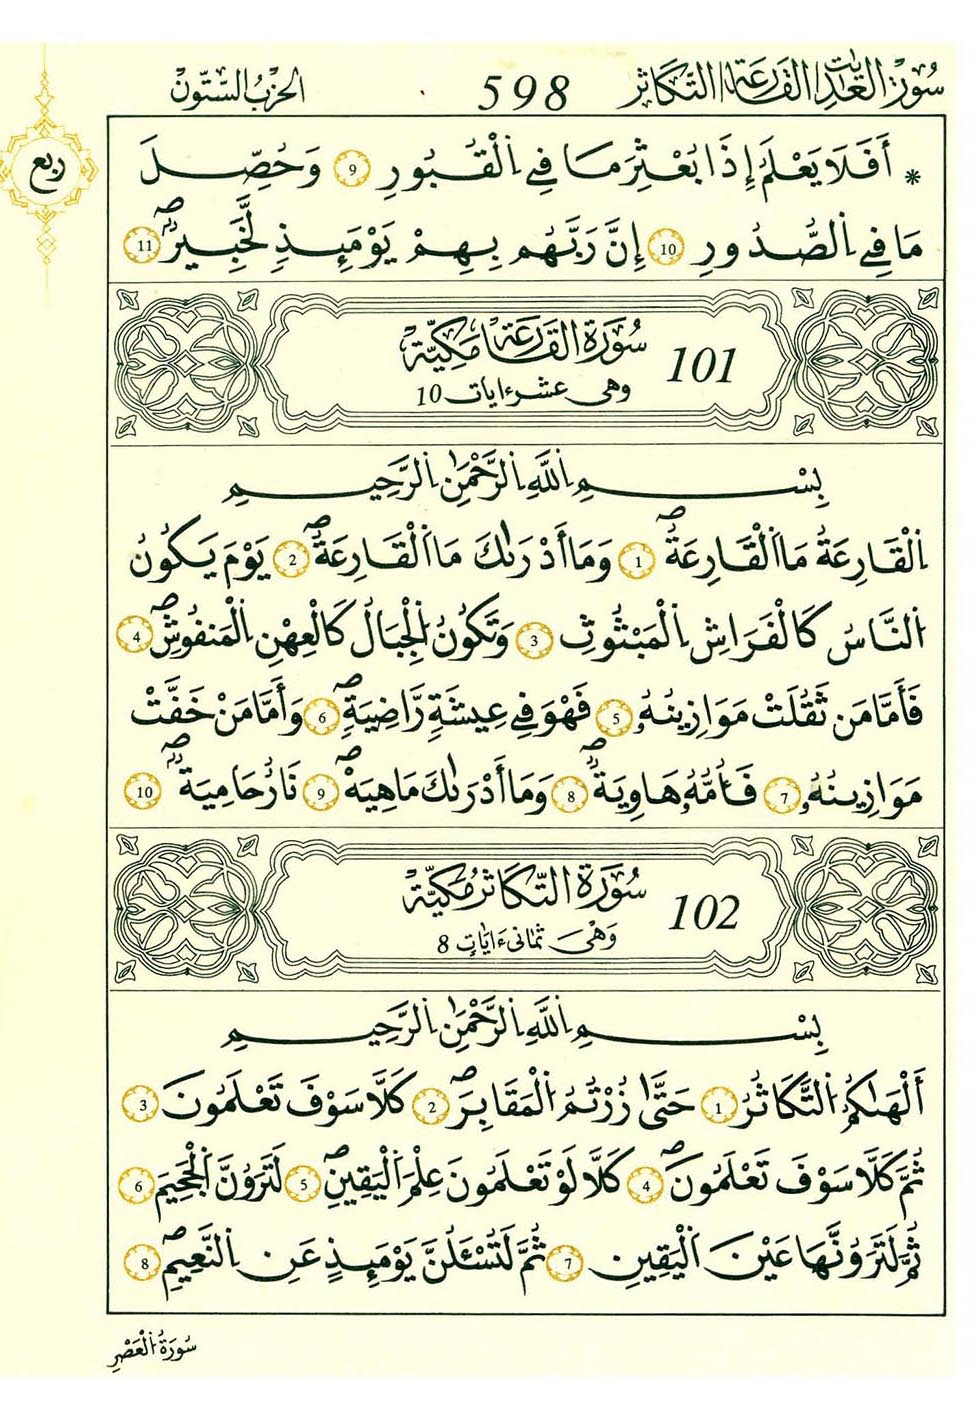 سورة العاديات القارعة التكاثر 598 الحزب الستون
ربع
* أَفَلَا يَعْلَمُ إِذَا بُعْثِرَ مَا فِے اِلْقُبُورِ 9 وَحُصِّلَ
مَا فِے اِلصُّدُورِ 10 إِنَّ رَبَّهُم بِهِمْ يَوْمَئِذٍ لَّخَبِيرٌ 11
101 سُورَةُ القَارِعَةِ مَكِّيَّة
وهى عشر ءايات 10
بِسْمِ اِللَّهِ اِلرَّحْمَٰنِ اِلرَّحِيمِ
اِلْقَارِعَةُ مَا اَلْقَارِعَةُ 1 وَمَا أَدْرَىٰكَ مَا اَلْقَارِعَةُ 2 يَوْمَ يَكُونُ
اُلنَّاسُ كَالْفَرَاشِ اِلْمَبْثُوثِ 3 وَتَكُونُ اُلْجِبَالُ كَالْعِهْنِ اِلْمَنفُوشِ 4
فَأَمَّا مَن ثَقُلَتْ مَوَازِينُهُۥ 5 فَهْوَ فِے عِيشَةٍ رَّاضِيَةٍ 6 وَأَمَّا مَنْ خَفَّتْ
مَوَازِينُهُۥ 7 فَأُمُّهُۥ هَاوِيَةٌ 8 وَمَا أَدْرَىٰكَ مَا هِيَهْ 9 نَارٌ حَامِيَةٌ 10
102 سُورَةُ التَّكَاثُرِ مَكِّيَّة
وَهْىَ ثمانى ءايات 8
بِسْمِ اِللَّهِ اِلرَّحْمَٰنِ اِلرَّحِيمِ
أَلْهَىٰكُمُ اُلتَّكَاثُرُ 1 حَتَّىٰ زُرْتُمُ اُلْمَقَابِرَ 2 كَلَّا سَوْفَ تَعْلَمُونَ 3
ثُمَّ كَلَّا سَوْفَ تَعْلَمُونَ 4 كَلَّا لَوْ تَعْلَمُونَ عِلْمَ اَلْيَقِينِ 5 لَتَرَوُنَّ اَلْجَحِيمَ 6
ثُمَّ لَتَرَوُنَّهَا عَيْنَ اَلْيَقِينِ 7 ثُمَّ لَتُسْـَٔلُنَّ يَوْمَئِذٍ عَنِ اِلنَّعِيمِ 8
سُورَةُ اُلْعَصْرِ